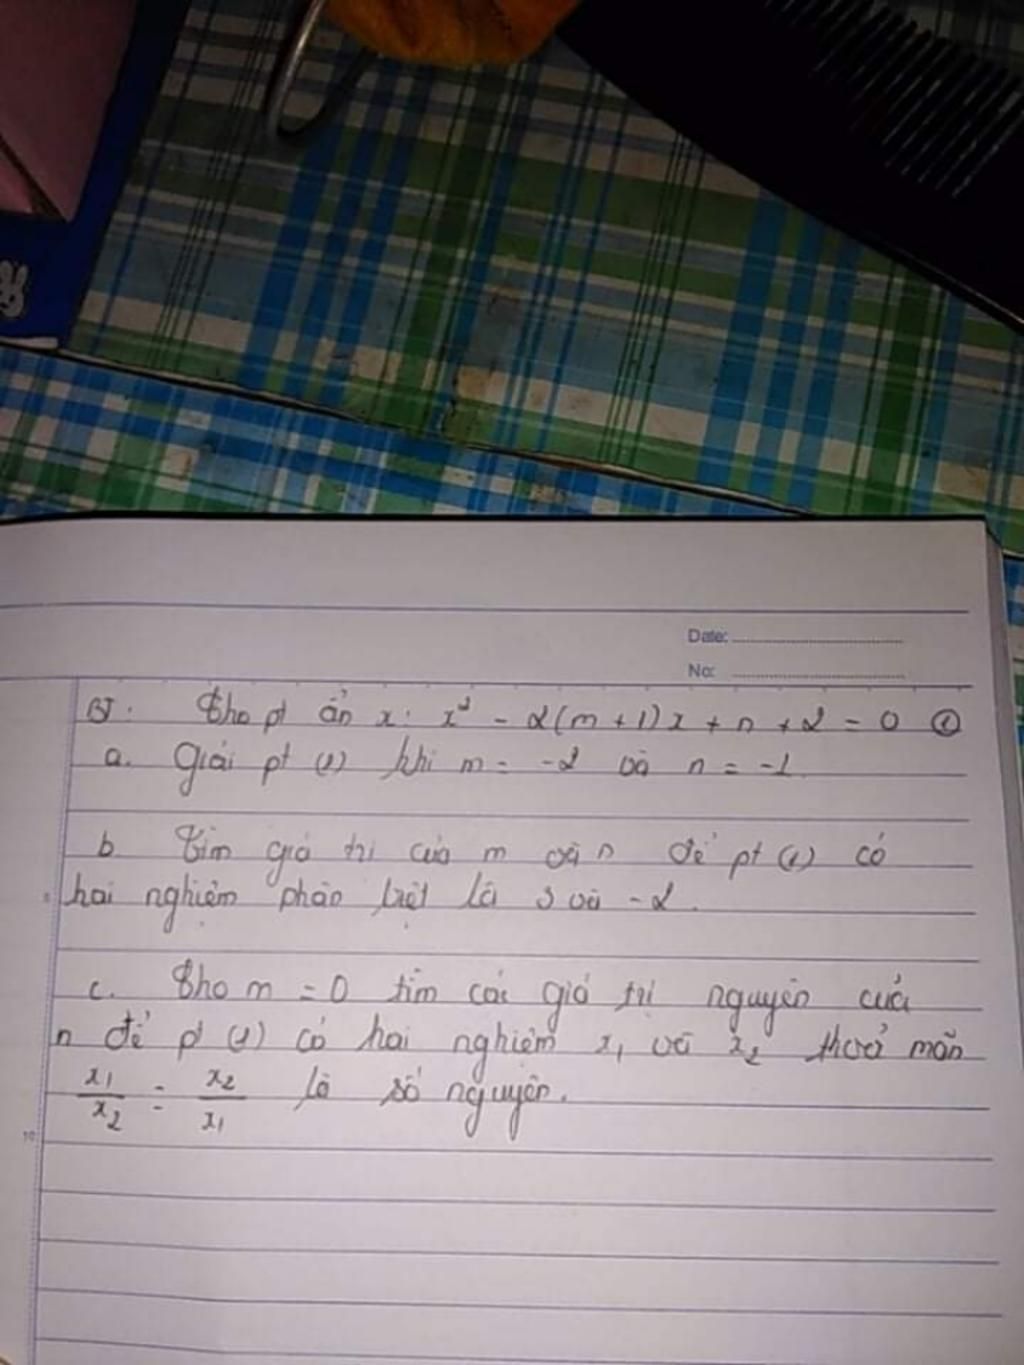 Date:
No:
BT: Cho pt ẩn x: x² - 2(m+1)x + n + 2 = 0 (1)
a. Giải pt (1) khi m = -2 và n = -1.
b. Tìm giá trị của m và n để pt (1) có
hai nghiệm phân biệt là 3 và -2.
c. Cho m = 0 tìm các giá trị nguyên của
n để pt (1) có hai nghiệm x₁ và x₂ thoả mãn
x₁/x₂ = x₂/x₁ là số nguyên.